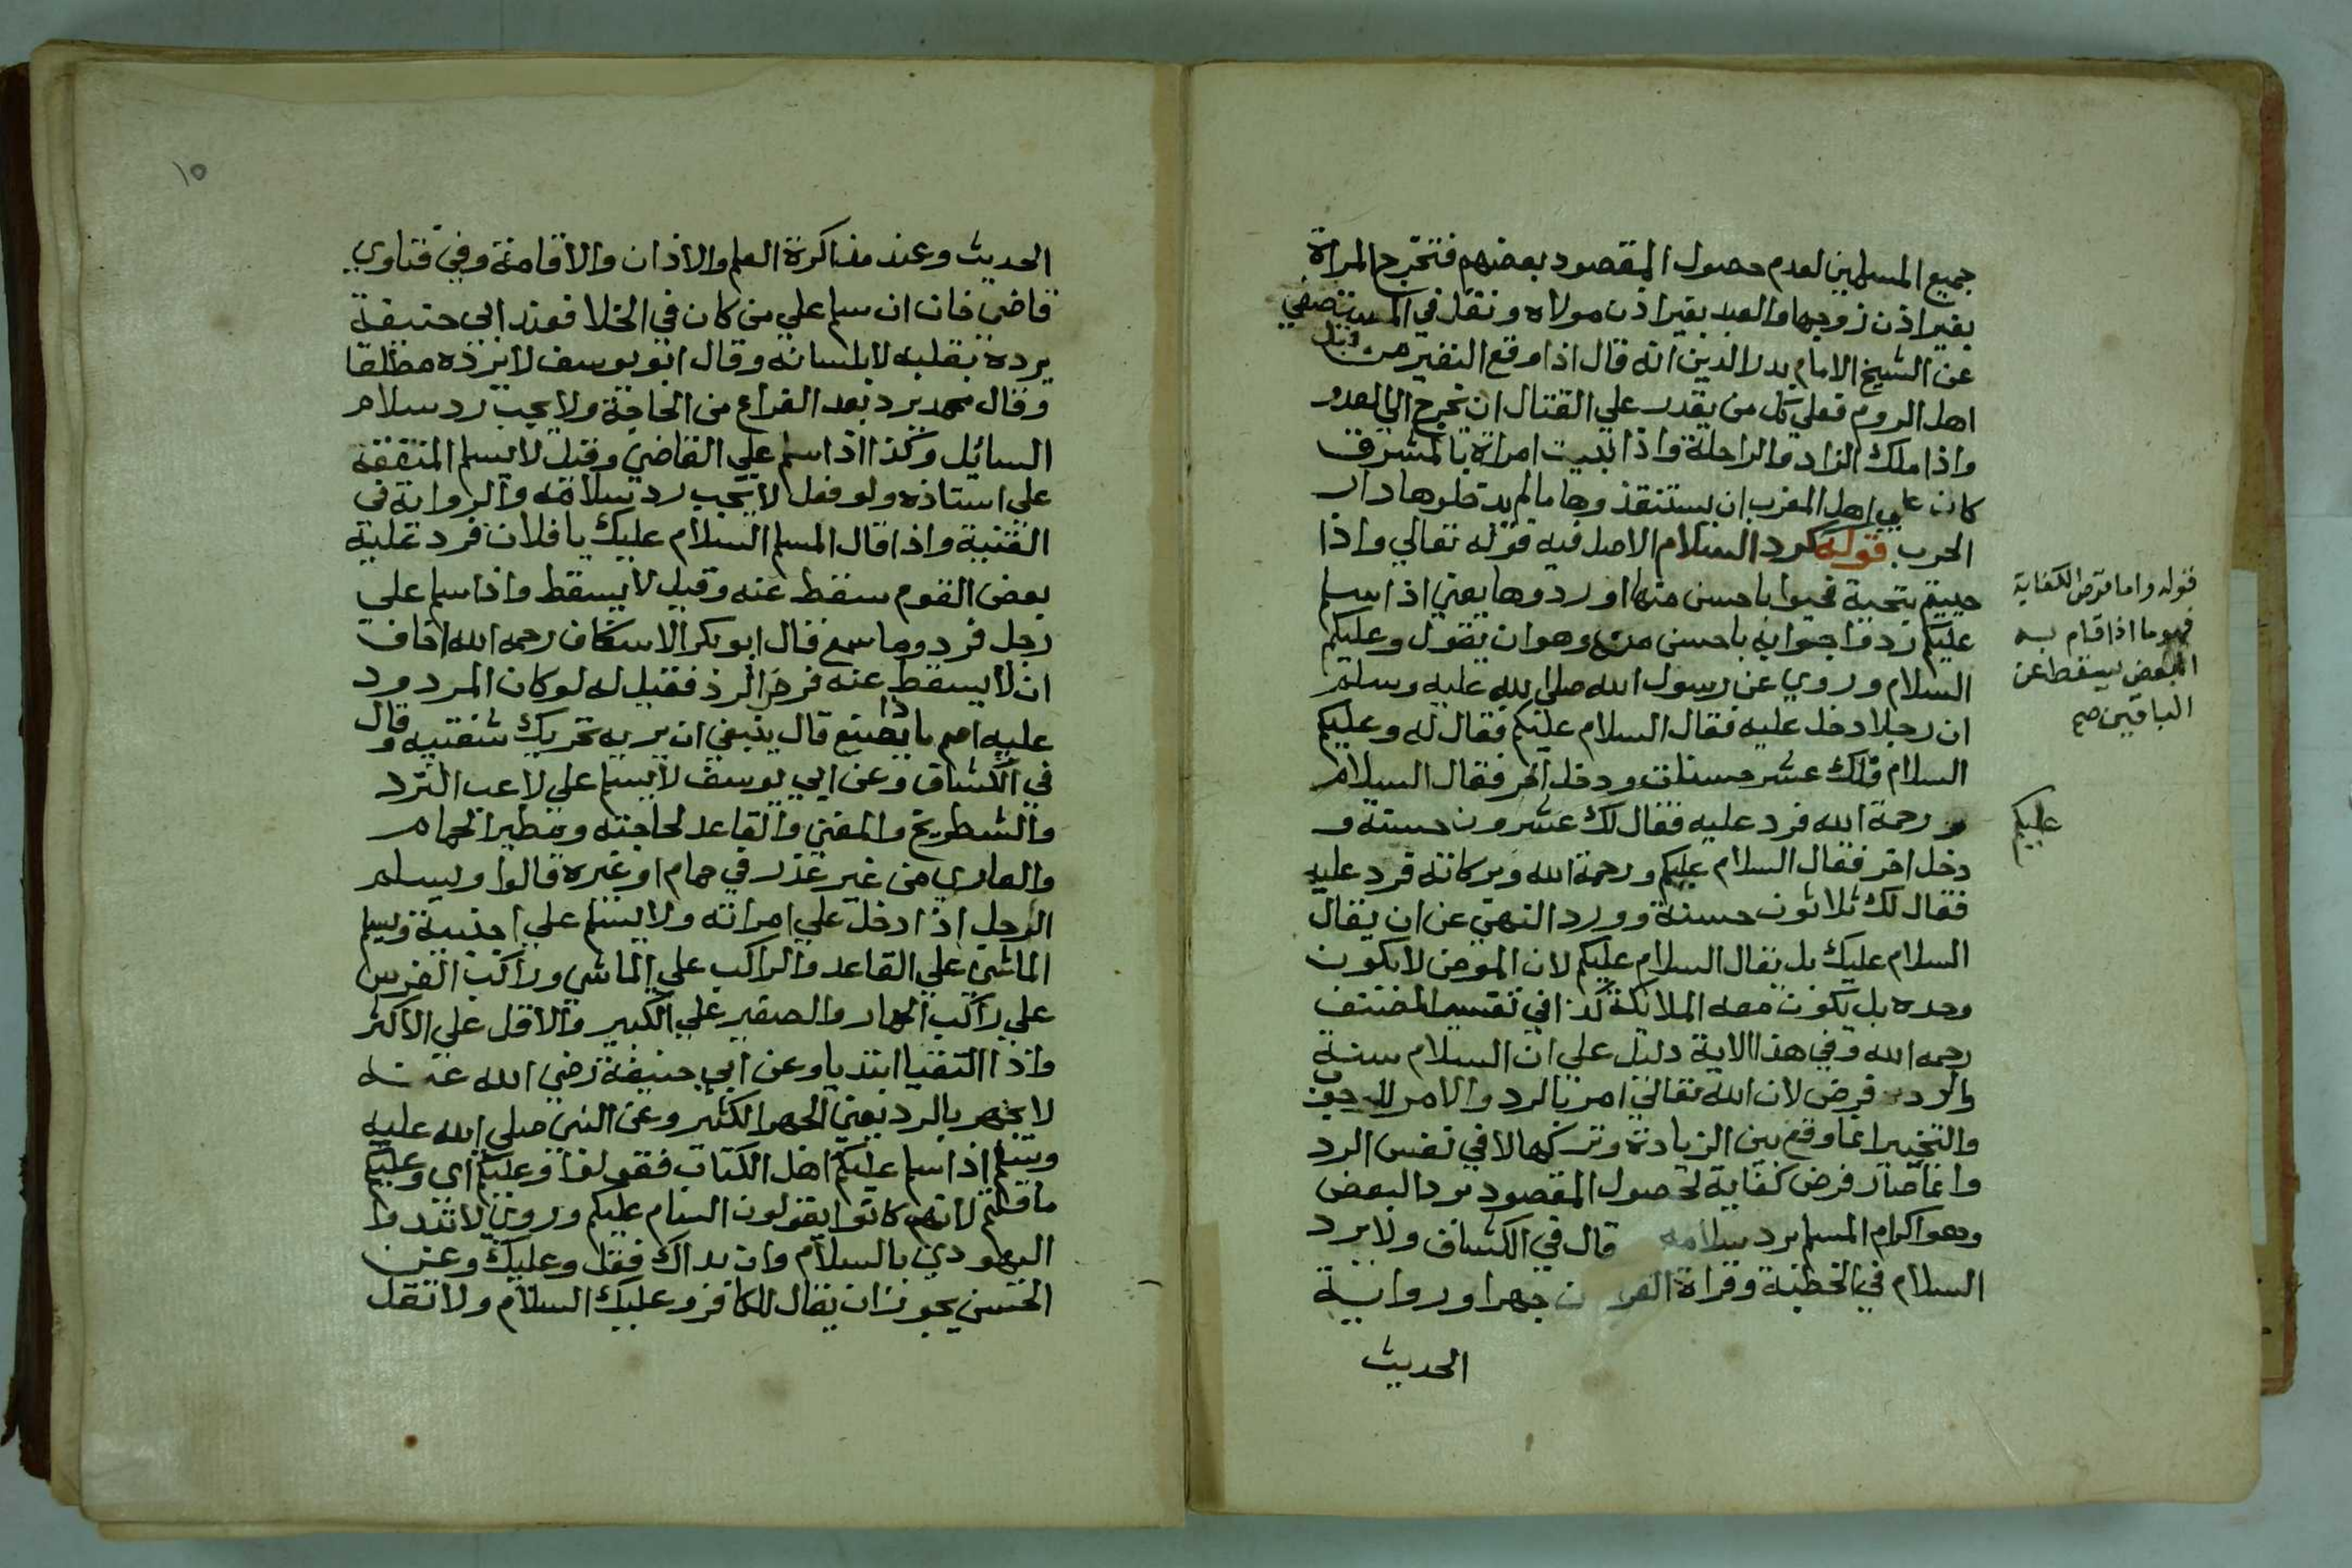 جميع المسلمين لعدم حصول المقصود ببعضهم فتخرج المراة
بغير اذن زوجها والعبد بغير اذن مولاه ونقل في المستصفي
عن الشيخ الامام بدر الدين انه قال اذا وقع النفير من قبل
اهل الروم فعلي كل من يقدر علي القتال ان يخرج الي العدو
واذا ملك الزاد والراحلة واذا سبيت امراة بالمشرق
كان علي اهل المغرب ان يستنقذوها ما لم يدخلوها دار
الحرب قوله كرد السلام الاصل فيه قوله تعالي واذا
حييتم بتحية فحيوا باحسن منها او ردوها يعني اذا سلم
عليكم ردوا جوابه باحسن منه وهو ان يقول وعليكم
السلام وروي عن رسول الله صلي الله عليه وسلم
ان رجلا دخل عليه فقال السلام عليكم فقال له وعليكم
السلام فلك عشر حسنات ودخل اخر فقال السلام
ورحمة الله فرد عليه فقال لك عشرون حسنة و
دخل اخر فقال السلام عليكم ورحمة الله وبركاته فرد عليه
فقال لك ثلاثون حسنة وورد النهي عن ان يقال
السلام عليك بل يقال السلام عليكم لان المومن لا يكون
وحده بل يكون معه الملائكة كذا في تفسير المصنف
رحمه الله وفي هذا الاية دليل علي ان السلام سنة
والرد فرض لان الله تعالي امر بالرد والامر للوجوب
والتخيير انما وقع بين الزيادة وتركها لا في نفس الرد
وانما صار فرض كفاية لحصول المقصود برد البعض
وهو اكرام المسلم برد سلامه قال في الكشاف ولا يرد
السلام في الخطبة وقراة القرن جهرا ورواية
الحديث
قوله واما فرض الكفاية
فهو ما اذا قام به
البعض يسقط عن
الباقين صح
عليكم
١٥
الحديث وعند مذاكرة العلم والاذان والاقامة وفي فتاوي
قاضي خان ان سلم علي من كان في الخلا فعند ابي حنيفة
يرده بقلبه لا بلسانه وقال ابو يوسف لا يرده مطلقا
وقال محمد يرد بعد الفراغ من الحاجة ولا يجب رد سلام
السائل وكذا اذا سلم علي القاضي وقيل لا يسلم المتفقه
علي استاذه ولو فعل لا يجب رد سلامه والرواية في
القنية واذا قال المسلم السلام عليك يا فلان فرد عليه
بعض القوم سقط عنه وقيل لا يسقط واذا سلم علي
رجل فرد وما سمع قال ابو بكر الاسكاف رحمه الله اخاف
ان لا يسقط عنه فرض الرد فقيل له لو كان المردود
عليه اصم ماذا يصنع قال ينبغي ان يريه تحريك شفتيه وقال
في الكشاف وعن ابي يوسف لا يسلم علي لاعب النرد
والشطرنج والمغني والقاعد لحاجته ومطير الحمام
والعاري من غير عذر في حمام او غيره قالوا ويسلم
الرجل اذا دخل علي امراته ولا يسلم علي اجنبية ويسلم
الماشي علي القاعد والراكب علي الماشي وراكب الفرس
علي راكب الحمار والصغير علي الكبير والاقل علي الاكثر
واذا التقيا ابتديا وعن ابي حنيفة رضي الله عنه
لا يجهر بالرد يعني الجهر الكثير وعن النبي صلي الله عليه
وسلم اذا سلم عليكم اهل الكتاب فقولوا وعليكم اي وعليكم
ما قلتم لانهم كانوا يقولون السام عليكم وروي لا تبدوا
اليهودي بالسلام وان بداك فقل وعليك وعن
الحسن يجوز ان يقال للكافر وعليك السلام ولا تقل